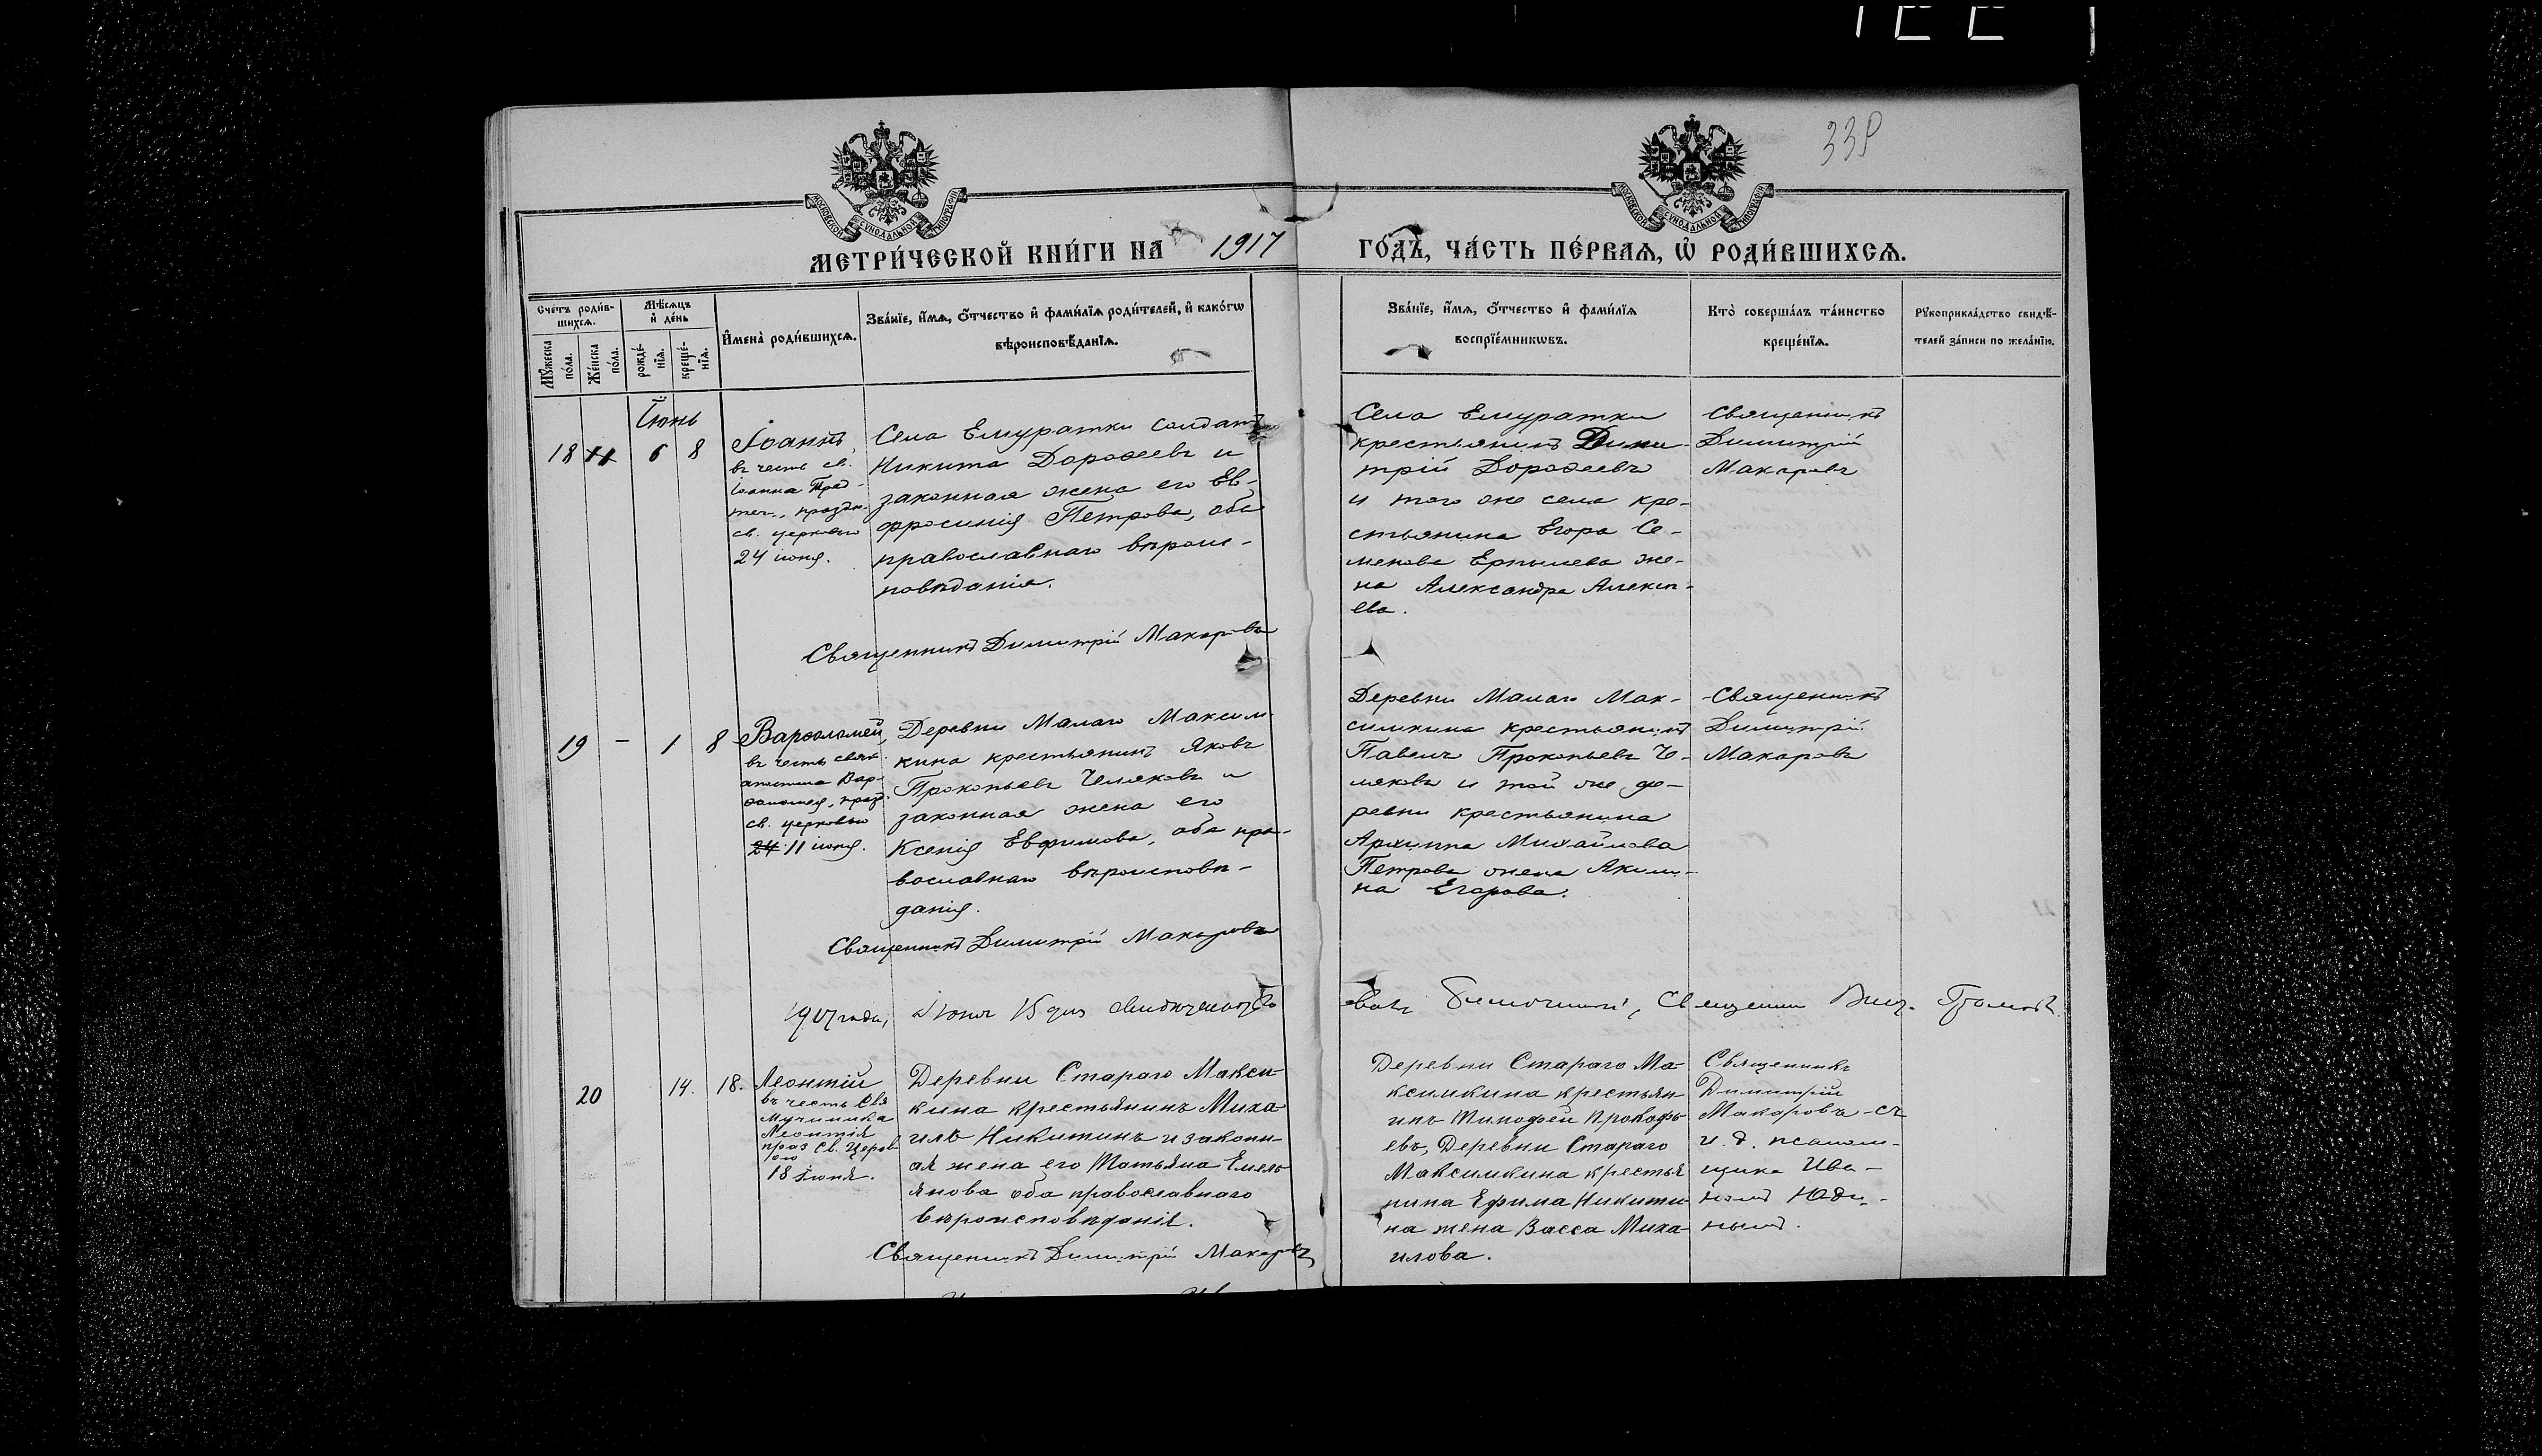 339
МЕТРИ́ЧЕСКОЙ КНИ́ГИ НА 1917 ГО́ДЪ, ЧА́СТЬ ПЕ́РВАѦ, Ѡ҆ РОДИ́ВШИХСѦ.
Сче́тъ роди́в-
шихсѧ.
Мꙋ́жеска
по́ла.
Же́нска
по́ла.
Мѣ́сѧцъ
и҆ де́нь
рожде́-
нїѧ.
креще́-
нїѧ.
И҆мена̀ роди́вшихсѧ.
Зва́нїе, и҆́мѧ, ѻ҆́тчество и҆ фами́лїѧ роди́телей, и҆ како́гѡ
вѣроисповѣ́данїѧ.
Зва́нїе, и҆́мѧ, ѻ҆́тчество и҆ фами́лїѧ
воспрїе́мникѡвъ.
Кто̀ соверша́лъ та́инство
креще́нїѧ.
Рꙋкоприкла́дство свидѣ́-
телей за́писи по жела́нїю.
Іюнь
18
6 8
Іоаннъ,
въ честь св.
Іоанна Пред-
теч., праздн.
св. церковью
24 іюня.
Села Емуратки солдатъ
Никита Дороѳеевъ и
законная жена его Ев-
фросинія Петрова, оба
православнаго вѣроис-
повѣданія.
Священникъ Димитрій Макаровъ
Села Емуратки
крестьянинъ Дими-
трій Дороѳеевъ
и того же села кре-
стьянина Егора Се-
менова Ермилева же-
на Александра Алексѣ-
ева.
Священникъ
Димитрій
Макаровъ
19 - 1 8
Варѳоломей,
въ честь свят.
апостола Вар-
ѳоломея, празд.
св. церковью
24 11 іюня.
Деревни Малаго Максим-
кина крестьянинъ Яковъ
Прокопьевъ Челяковъ и
законная жена его
Ксенія Евфимова, оба пра-
вославнаго вѣроисповѣ-
данія.
Священникъ Димитрій Макаровъ
Деревни Малаго Мак-
симкина крестьянинъ
Павелъ Прокопьевъ Че-
ляковъ и той же де-
ревни крестьянина
Архиппа Михайлова
Петрова жена Акили-
на Егорова.
Священникъ
Димитрій
Макаровъ
1917 года, Іюня 15 дня
20 14. 18.
Леонтій
въ честь Свя
Мученика
Леонтія
праз Св. Церков
ью
18 Іюня.
Деревни Стараго Макси-
кина крестьянинъ Миха
илъ Никитинъ и законн-
ая жена его Татьяна Емель
янова оба православнаго
вѣроисповѣданія.
Священникъ Димитрій Макаровъ
Деревни Стараго Ма-
ксимкина крестьян
инъ Тимофей Прокофь
евъ, Деревни Стараго
Максимкина крестья
нина Ефима Никити
на жена Васса Миха
илова.
Священникъ
Димитрій
Макаровъ - съ
и. д. псалом-
щика Ива-
номъ Юди-
нымъ.